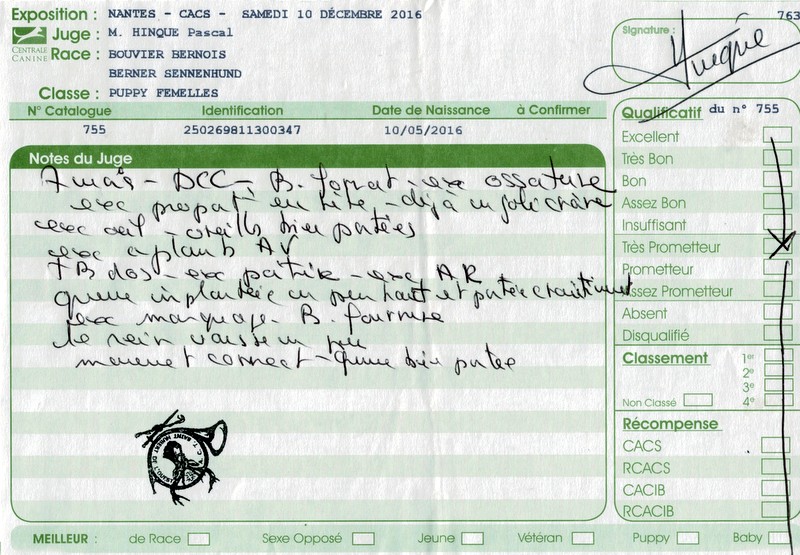 Exposition : NANTES - CACS - SAMEDI 10 DÉCEMBRE 2016
763
CENTRALE CANINE
Juge : M. HINQUE Pascal
Race : BOUVIER BERNOIS
BERNER SENNENHUND
Classe : PUPPY FEMELLES
Signature :
N° Catalogue Identification Date de Naissance à Confirmer
755 250269811300347 10/05/2016
Notes du Juge
7 mois - DCC - B. format - exc ossature
exc proport en tête - déjà un joli crâne
exc œil - oreilles bien portées
exc aplomb AV
TB dos - exc poitrine - exc AR
queue implantée un peu haut et portée
exc marquage - B. fourrure
le rein un peu
mouvement correct - queue bien portée
Qualificatif du n° 755
Excellent
Très Bon
Bon
Assez Bon
Insuffisant
Très Prometteur
Prometteur
Assez Prometteur
Absent
Disqualifié
Classement 1er
2e
3e
Non Classé 4e
Récompense
CACS
RCACS
CACIB
RCACIB
MEILLEUR : de Race Sexe Opposé Jeune Vétéran Puppy Baby